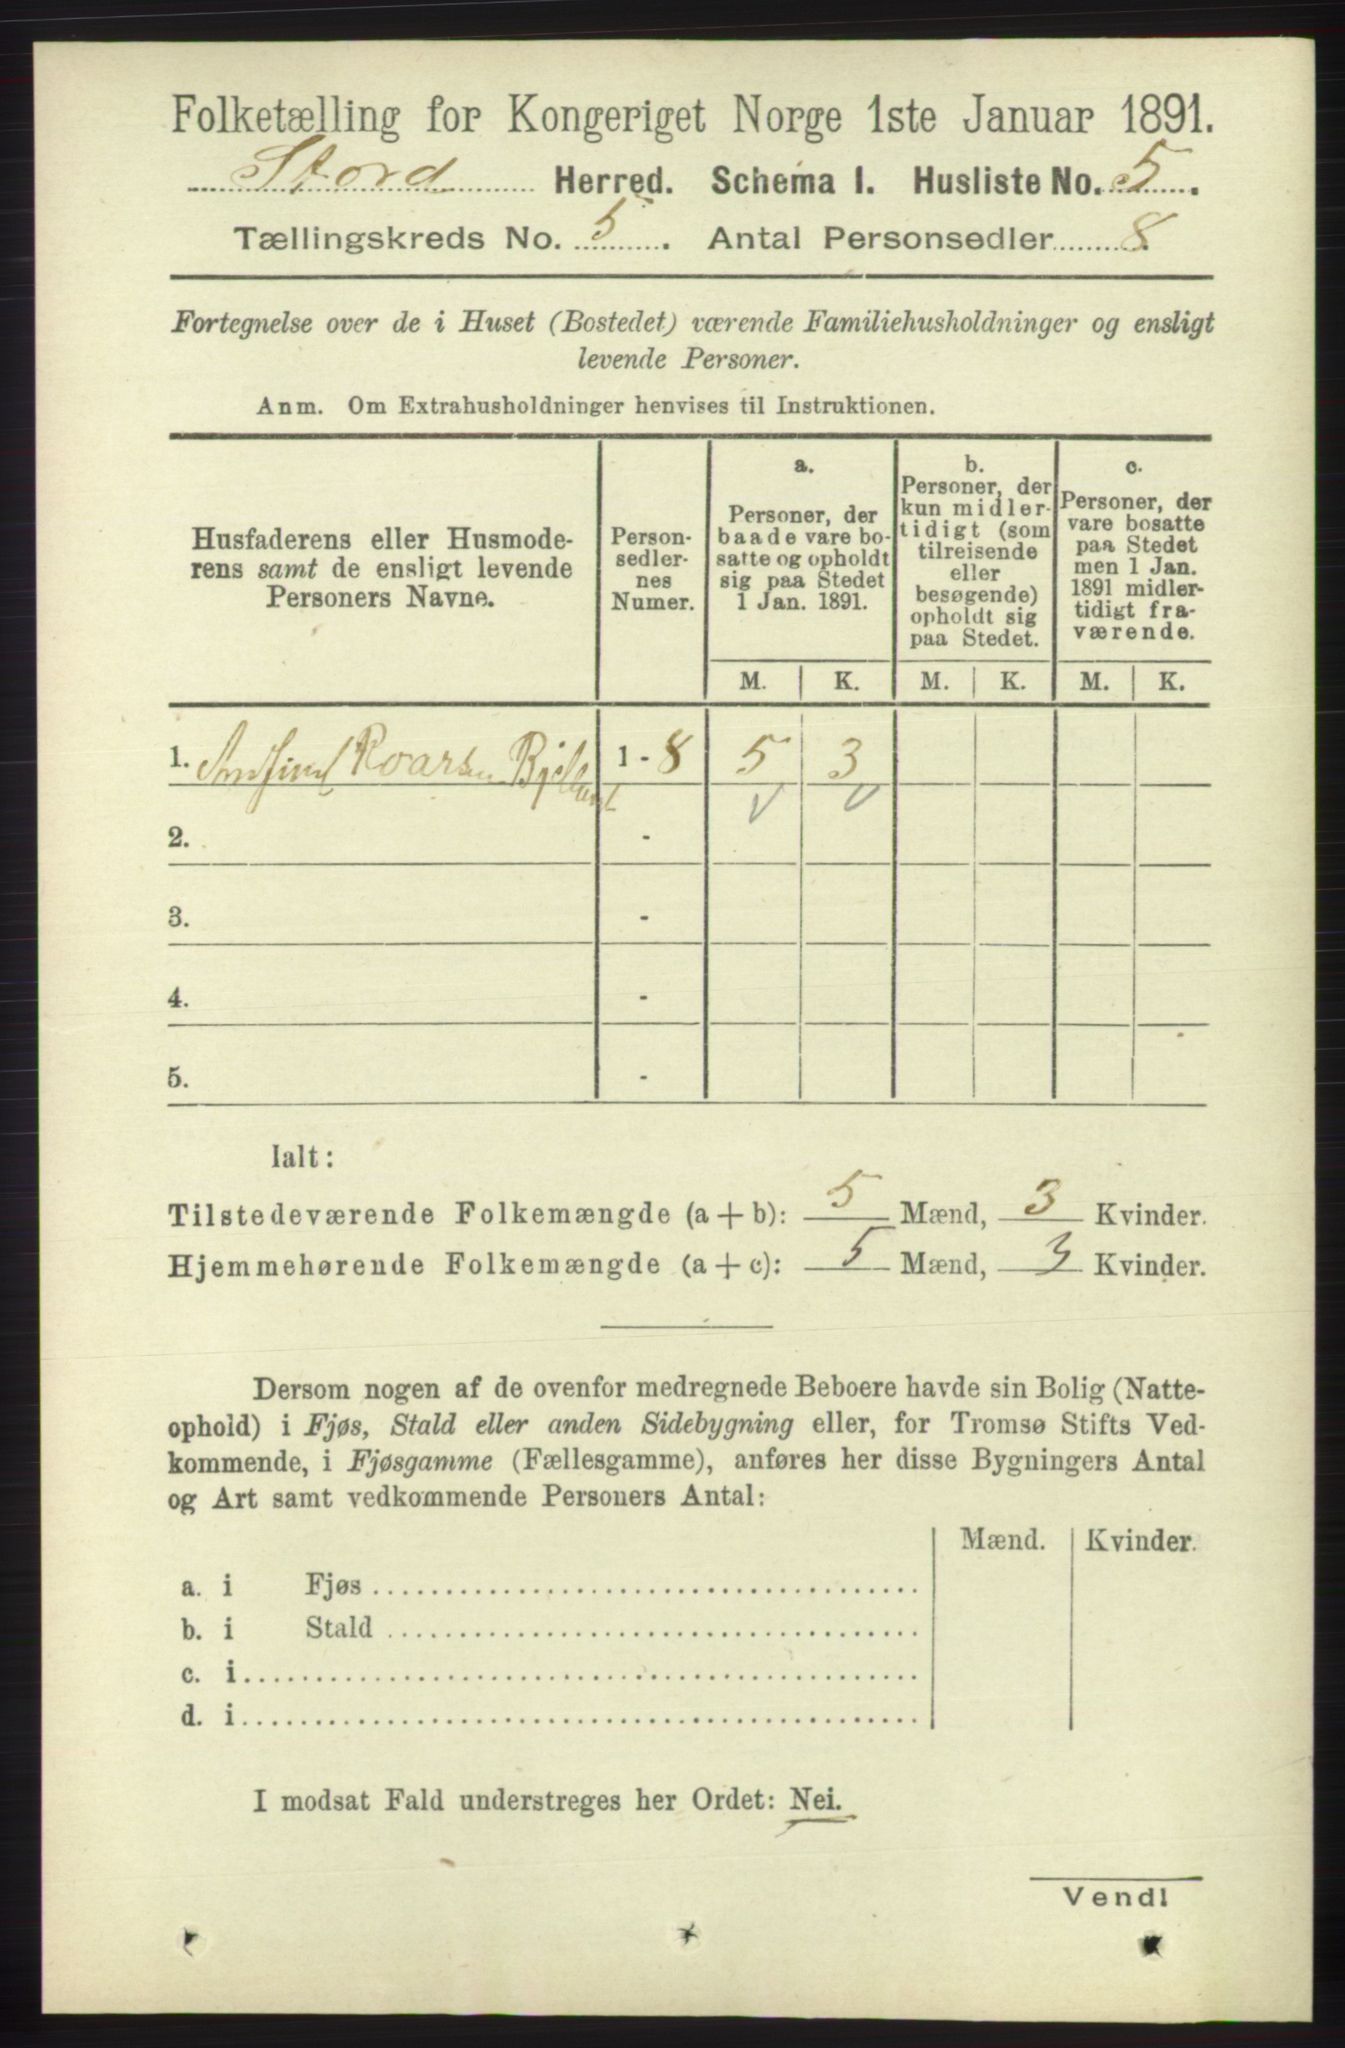 Folketælling for Kongeriget Norge 1ste Januar 1891.
Stord Herred. Schema I. Husliste No. 5.
Tællingskreds No. 5. Antal Personsedler 8
Fortegnelse over de i Huset (Bostedet) værende Familiehusholdninger og ensligt
levende Personer.
Anm. Om Extrahusholdninger henvises til Instruktionen.
Husfaderens eller Husmode-
rens samt de ensligt levende
Personers Navne.
Person-
sedler-
nes
Numer.
a.
Personer, der
baade vare bo-
satte og opholdt
sig paa Stedet
1 Jan. 1891.
b.
Personer, der
kun midler-
tidigt (som
tilreisende
eller
besøgende)
opholdt sig
paa Stedet.
c.
Personer, der
vare bosatte
paa Stedet
men 1 Jan.
1891 midler-
tidigt fra-
værende.
M. K. M. K. M. K.
1. Roarsen Bjelland 1 - 8 5 3
2. -
3. -
4. -
5. -
Ialt:
Tilstedeværende Folkemængde (a + b): 5 Mænd, 3 Kvinder.
Hjemmehørende Folkemængde (a + c): 5 Mænd, 3 Kvinder.
Dersom nogen af de ovenfor medregnede Beboere havde sin Bolig (Natte-
ophold) i Fjøs, Stald eller anden Sidebygning eller, for Tromsø Stifts Ved-
kommende, i Fjøsgamme (Fællesgamme), anføres her disse Bygningers Antal
og Art samt vedkommende Personers Antal:
Mænd. Kvinder.
a. i Fjøs
b. i Stald
c. i
d. i
I modsat Fald understreges her Ordet: Nei.
Vendl